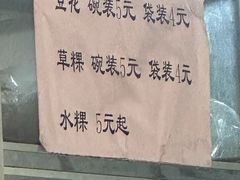 豆花 碗装5元 袋装4元
草粿 碗装5元 袋装4元
水粿 5元起